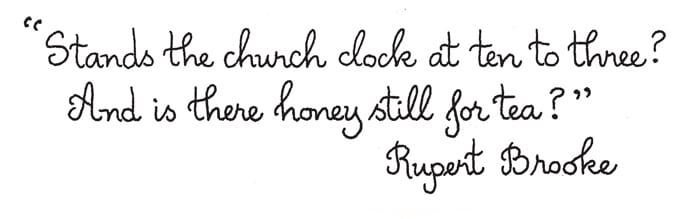 “Stands the church clock at ten to three?
And is there honey still for tea?”
Rupert Brooke